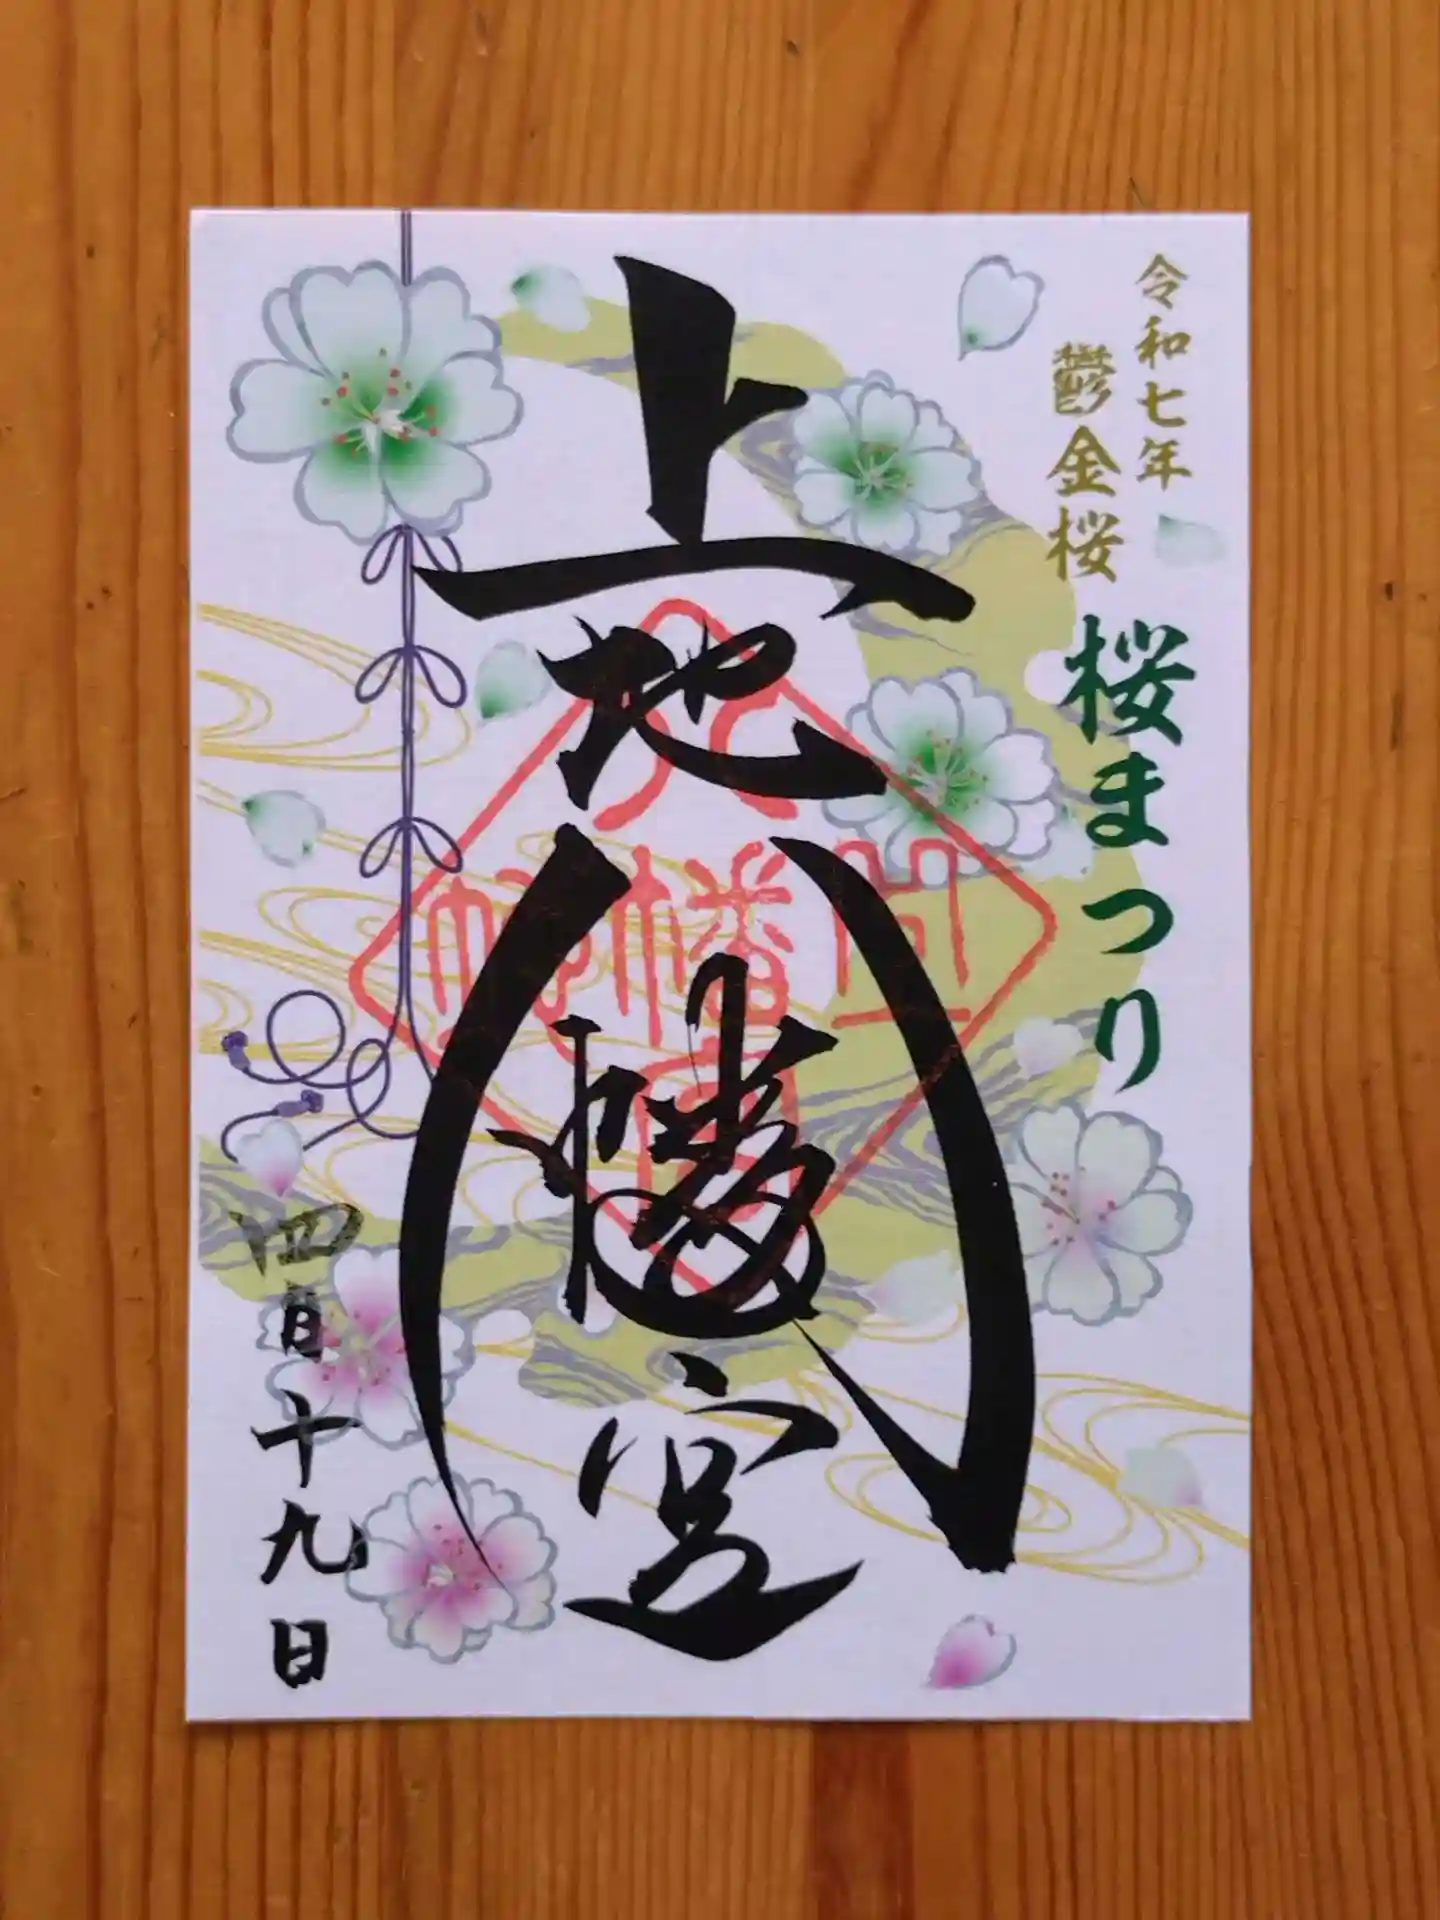 令和七年
鬱金桜
桜まつり
上地八幡宮
上地八幡宮
四月十九日